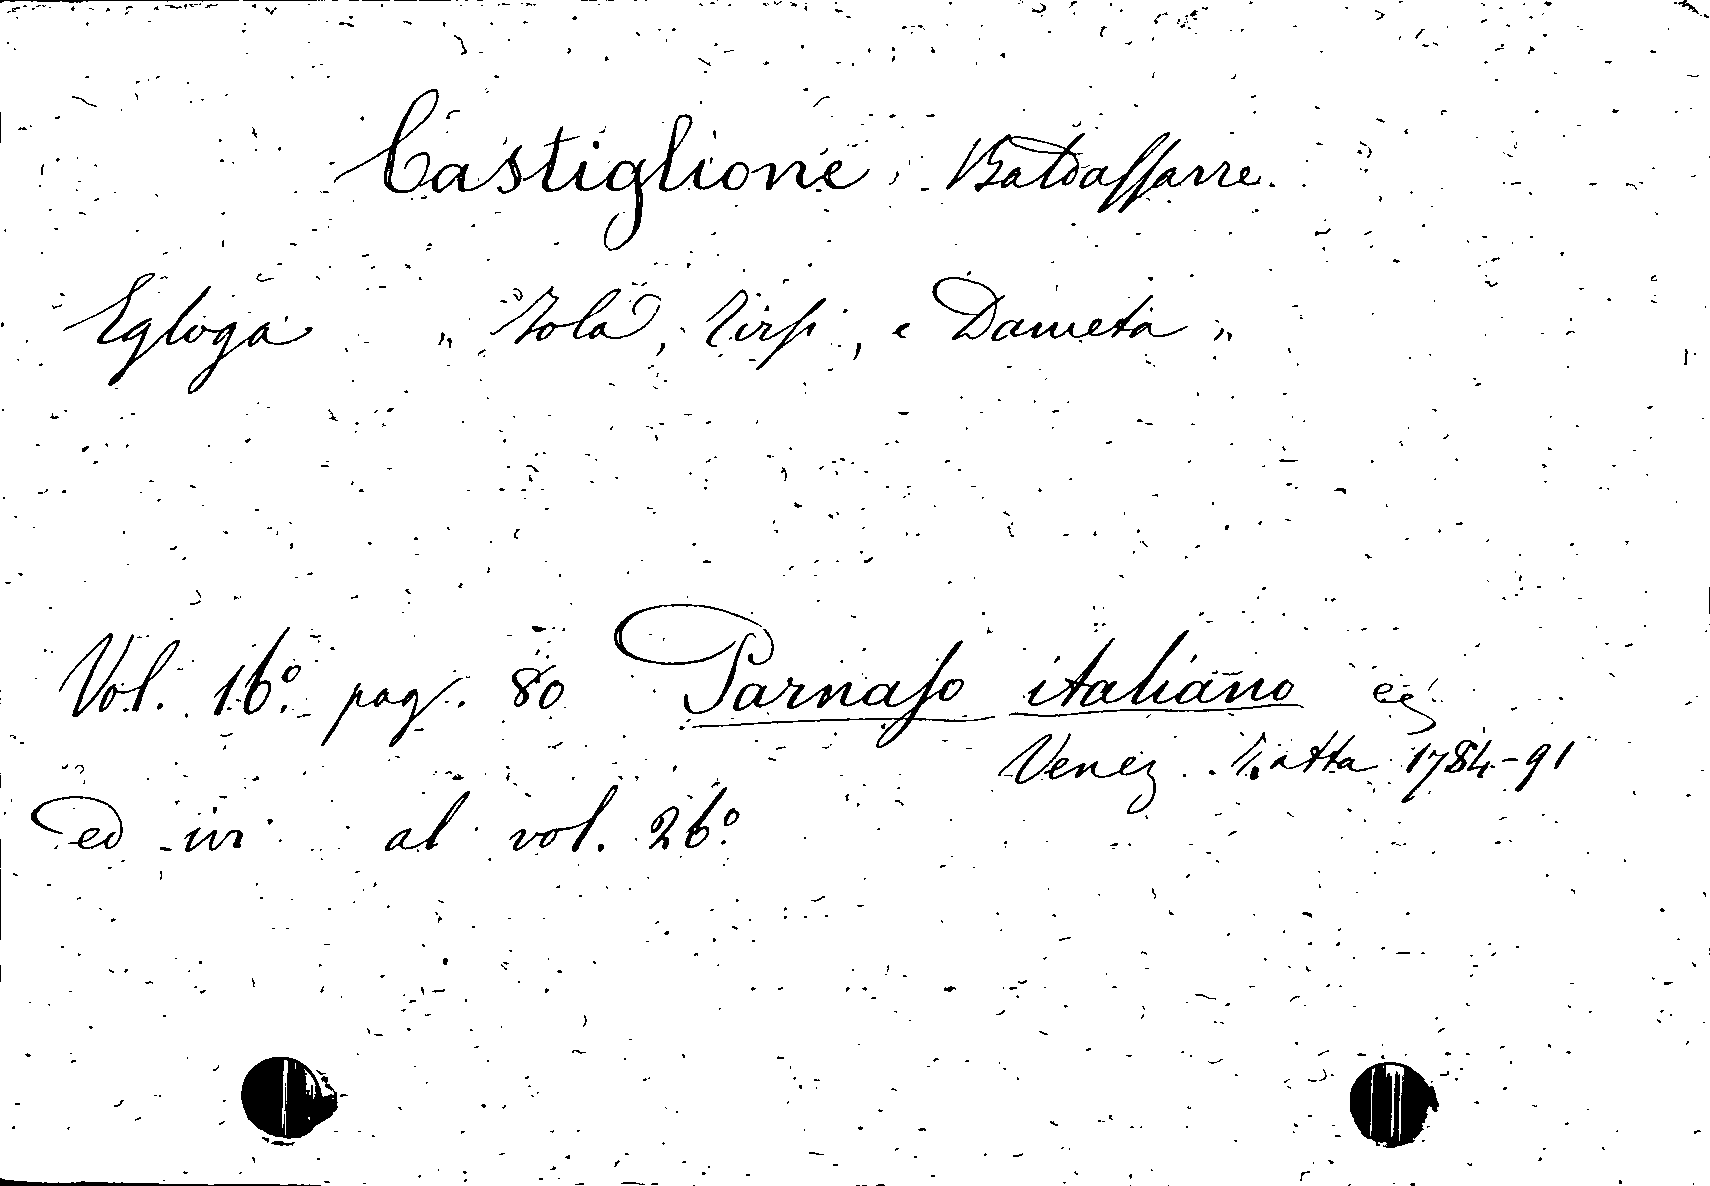 Castiglione Baldassarre.
Egloga „ Iola, Tirsi, e Dameta „
Vol. 16.º pag. 80 Parnaso italiano
Venez. Zatta 1784-91
ed ivi al vol. 26.º